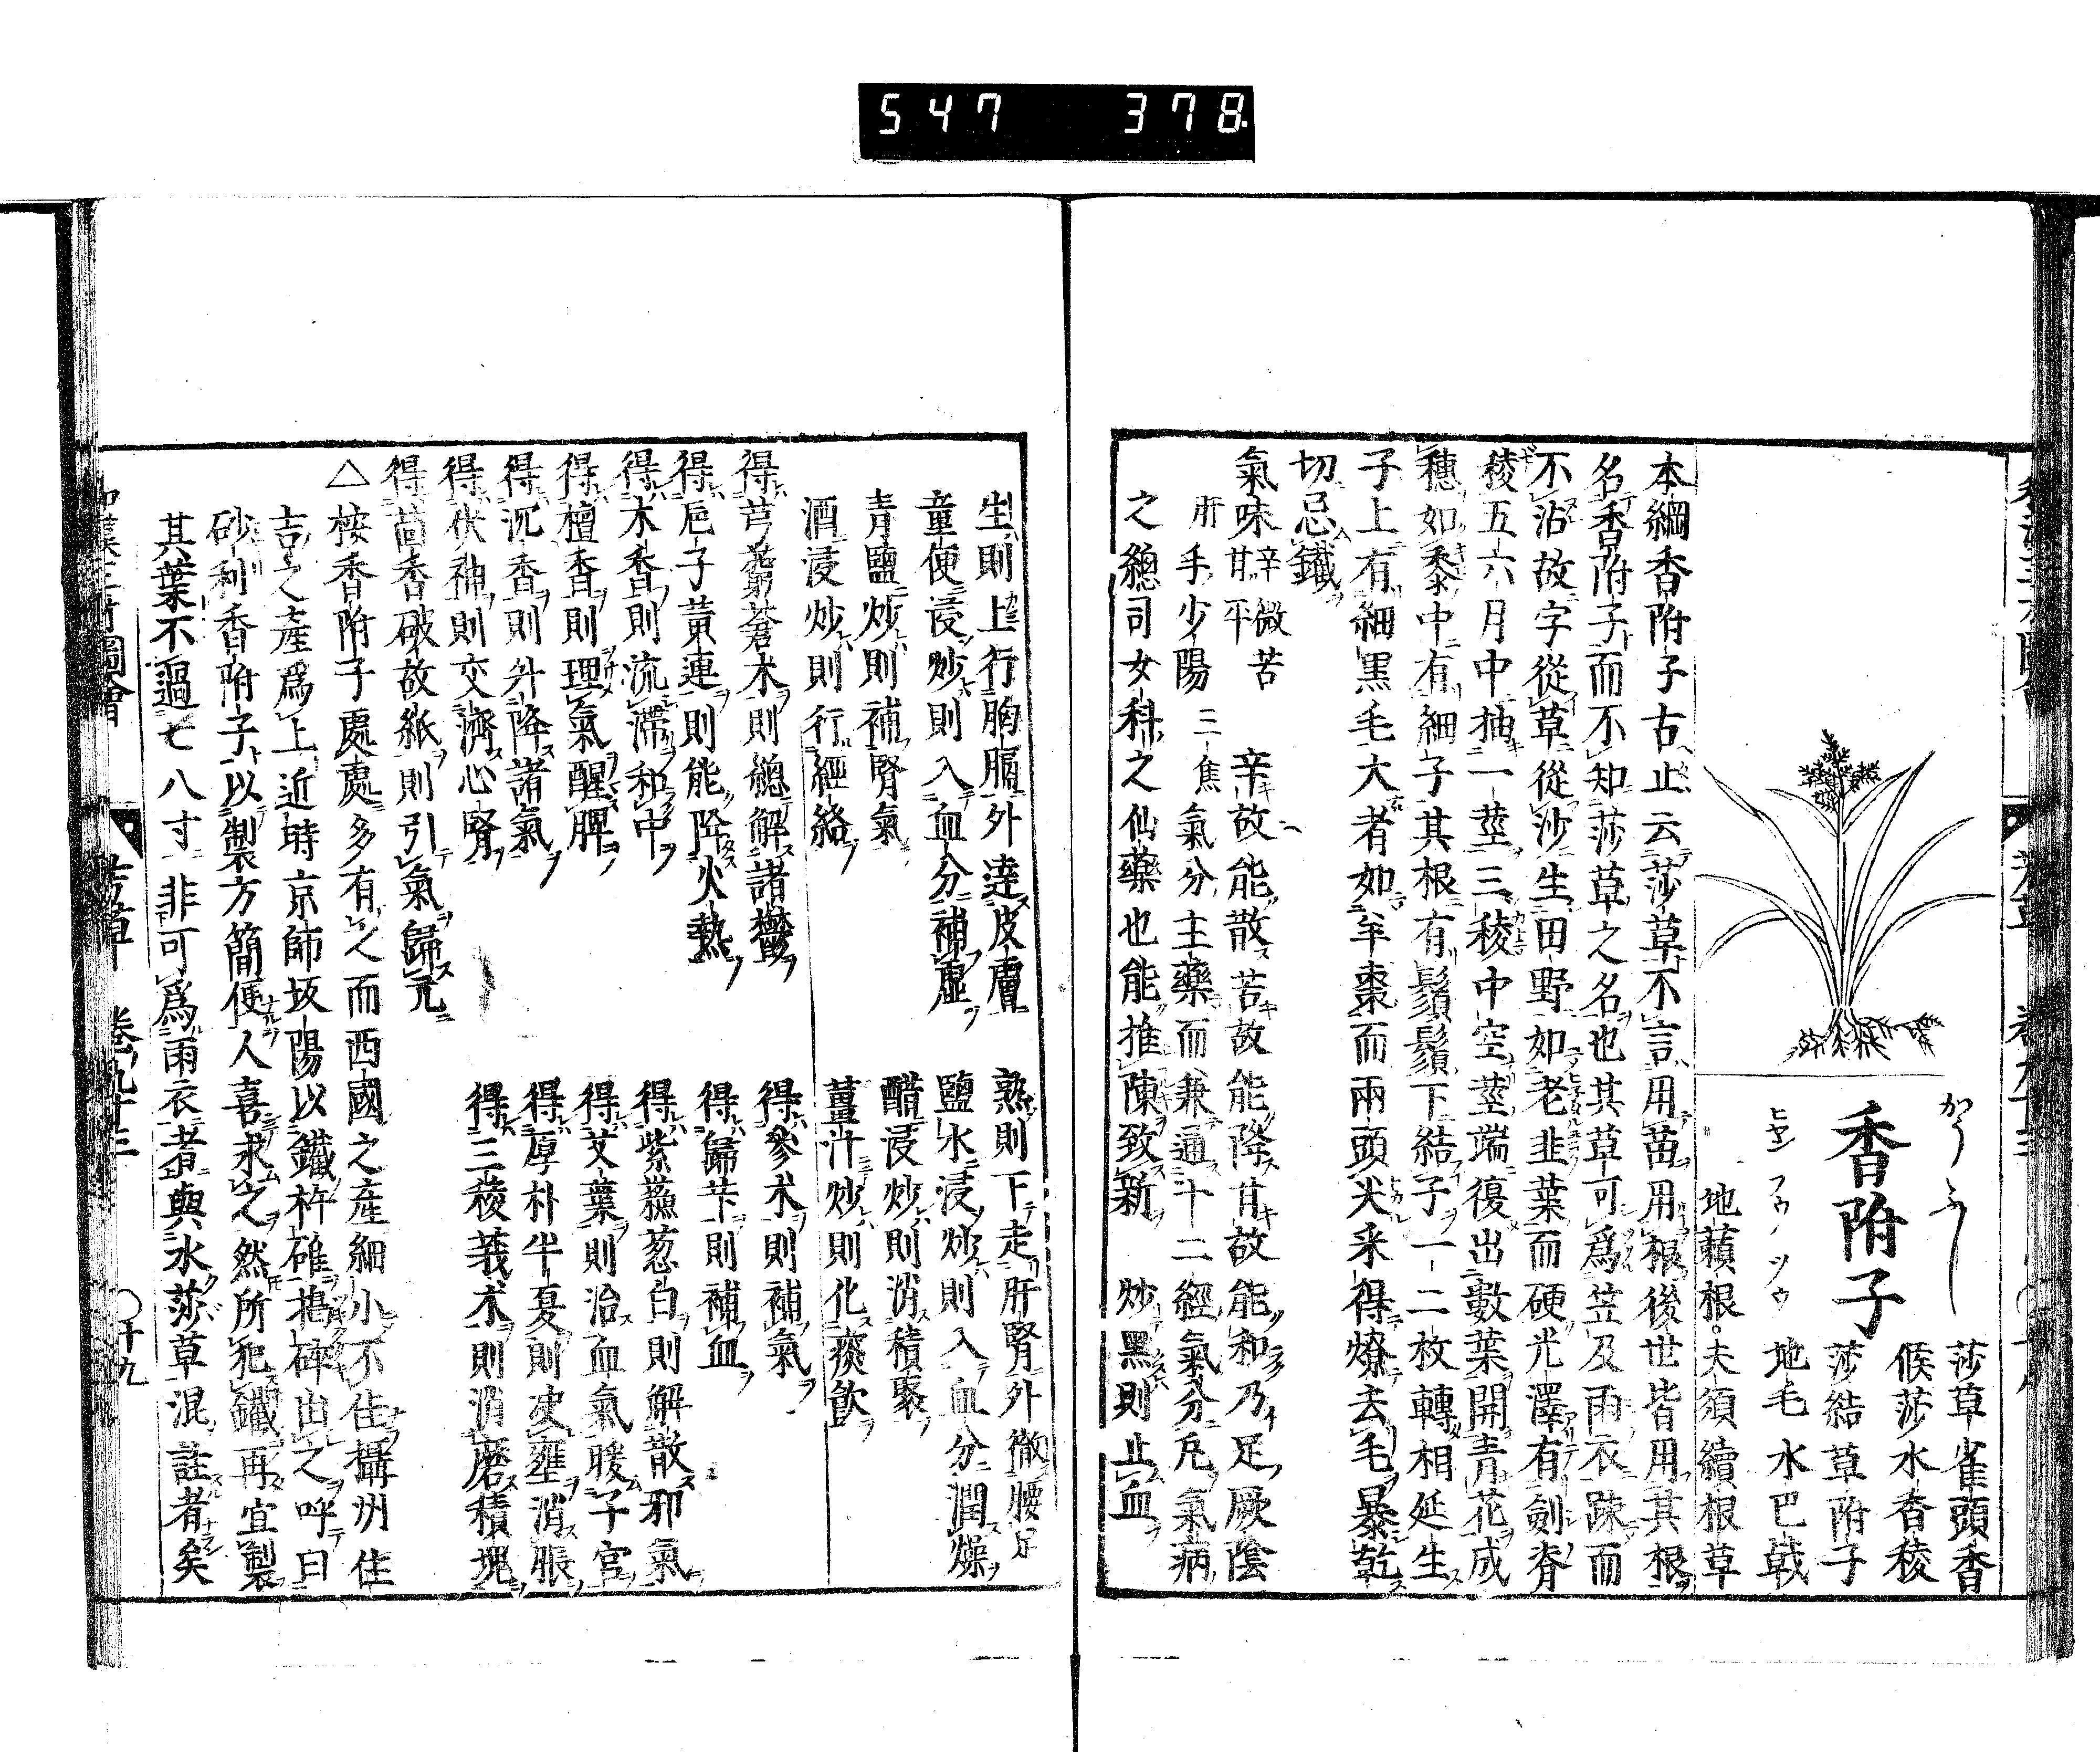 547 378
かうぶし
香附子
ヒヤン フウ ツウ
莎草 雀頭香
候莎 水香稜
莎結 草附子
地毛 水巴戟
地藾根。夫須 續根草
本綱香附子古止云莎草不言用苗用根後世皆用其根
名香附子而不知莎草之名也其草可爲笠及雨衣疎而
不沾故字從草從沙生田野如老韭葉而硬光澤有劍脊
稜五六月中抽一莖三稜中空莖端復出數葉開青花成
穗如黍中有細子其根有鬚鬚下結子一二枚轉相延生
子上有細黒毛大者如羊棗而兩頭尖釆得燎去毛暴乾
切忌鐵
氣味 辛微苦甘平 辛故能散苦故能降甘故能和乃足厥陰
肝手少陽三焦氣分主藥而兼通十二經氣分凡氣病
之總司女科之仙藥也能推陳致新 炒黑則止血
生則上行胸膈外達皮膚 熟則下走肝腎外徹腰足
童便浸炒則入血分補虛 鹽水浸炒則入血分潤燥
青鹽炒則補腎氣 醋浸炒則消積聚
酒浸炒則行經絡 薑汁炒則化痰飮
得芎藭蒼朮則總解諸鬱 得參朮則補氣
得巵子黃連則能降火熱 得歸苄則補血
得木香則流滯和中 得紫蘇葱白則解散邪氣
得檀香則理氣醒脾 得艾葉則治血氣暖子宮
得沉香則升降諸氣 得厚朴半夏則决壅消脹
得茯神則交濟心腎 得三稜莪朮則消磨積塊
得茴香破故紙則引氣歸元
△按香附子處處多有之而西國之產細小不佳攝州住
吉之產爲上近時京師坂陽以鐵杵碓搗碎出之呼曰
砂利香附子以製方簡便人喜求之然所犯鐵再宜製
其葉不過七八寸非可爲雨衣者與水莎草混註者矣
圖會 芳草 卷九十三 〇十九